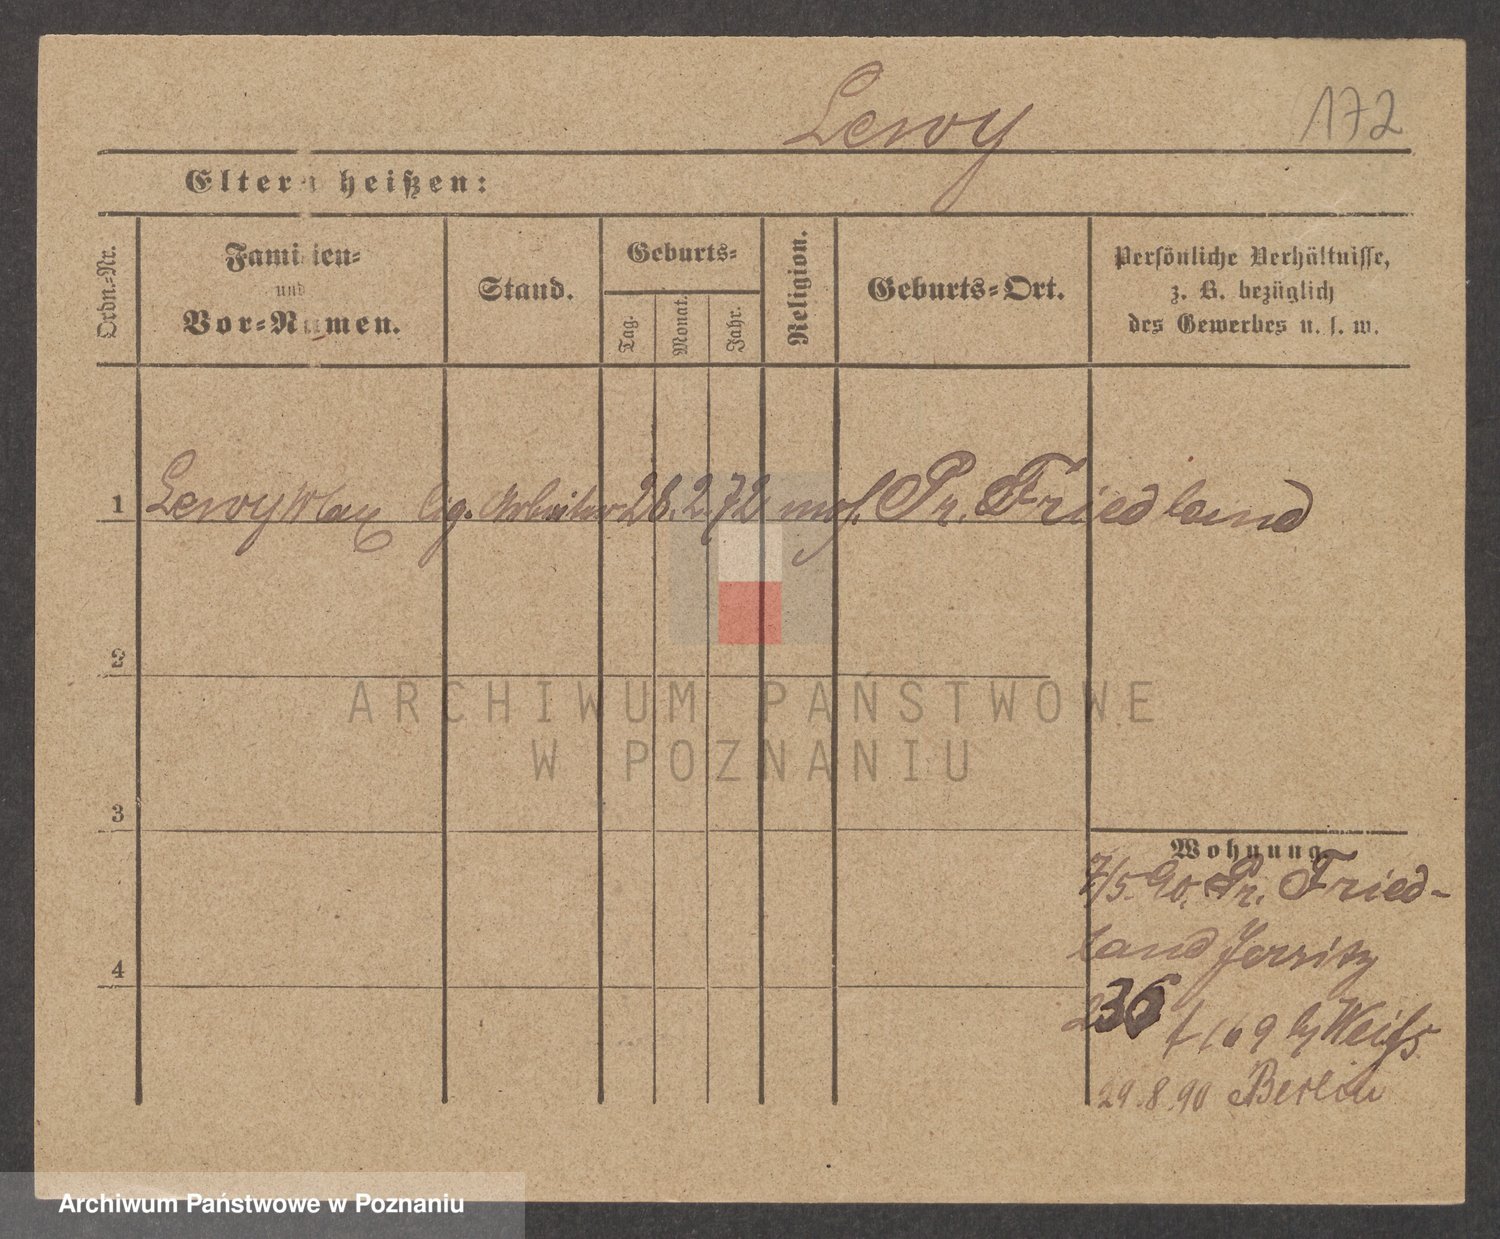 Lewy
172
Eltern heißen:
Ordn.-Nr.
Familien-
und
Vor-Namen.
Stand.
Geburts-
Tag.
Monat.
Jahr.
Religion.
Geburts-Ort.
Persönliche Verhältnisse,
z. B. bezüglich
des Gewerbes u. s. w.
1 Lewy Max Cig. Arbeiter 28. 2. 72 mos. Pr. Friedland
2
3
Wohnung
7/5. 90. Pr. Fried-
land Jersitz
4
236 169 by Weiß
29.8.90 Berlin
ARCHIWUM PAŃSTWOWE
W POZNANIU
Archiwum Państwowe w Poznaniu